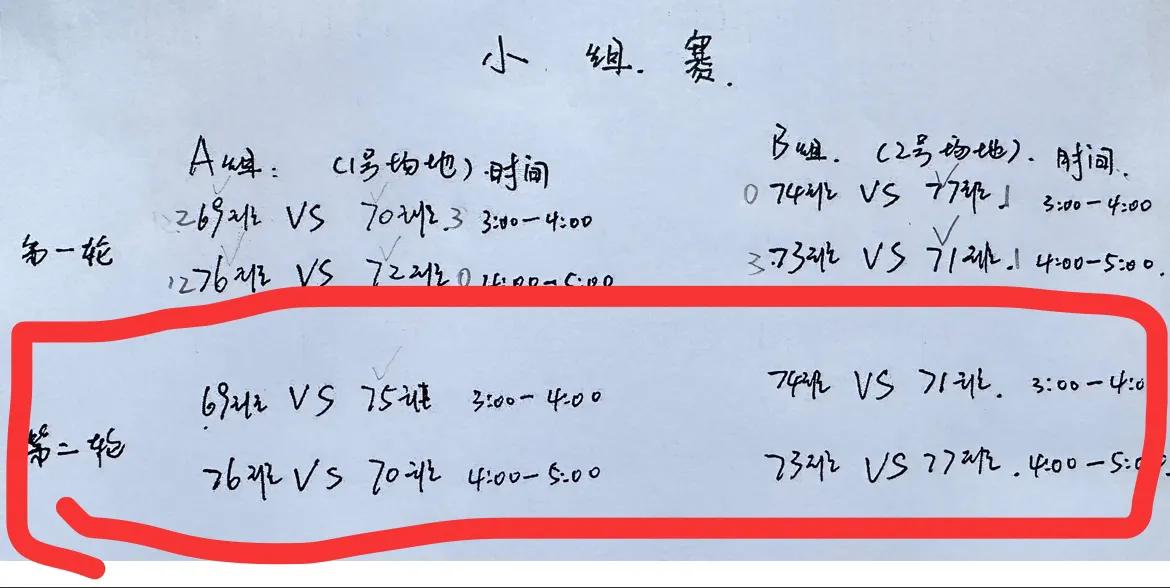 小组赛.
A组: (1号场地) 时间
B组. (2号场地). 时间.
第一轮
269班 VS 70班.3 3:00-4:00
0 74班 VS 77班.1 3:00-4:00
1276班 VS 72班0 4:00-5:00
3.73班 VS 71班.1 4:00-5:00.
第二轮
69班 VS 75班 3:00-4:00
74班 VS 71班. 3:00-4:0
76班 VS 70班 4:00-5:00
73班 VS 77班. 4:00-5:0